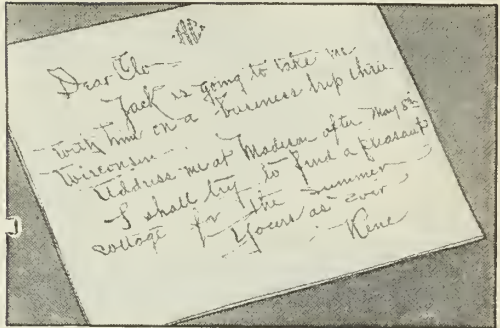 Dear Clo—
Jack is going to take me
with him on a business trip thru
Wisconsin—
Address me at Madison after May 5th
I shall try to find a pleasant
cottage for the summer—
Yours as ever—
Rene